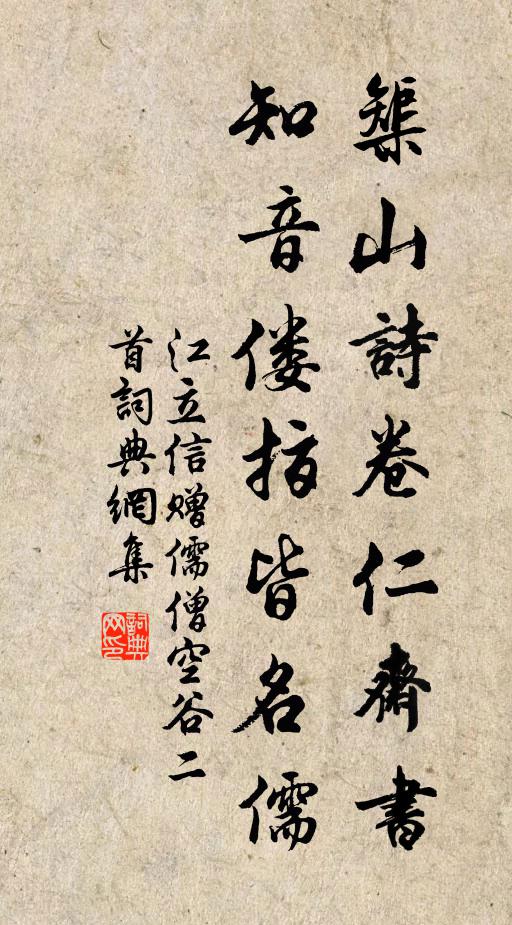 榘山詩卷仁齋書
知音偻指皆名儒
江立信贈儒僧空谷二
首詞典網集
詞典网印